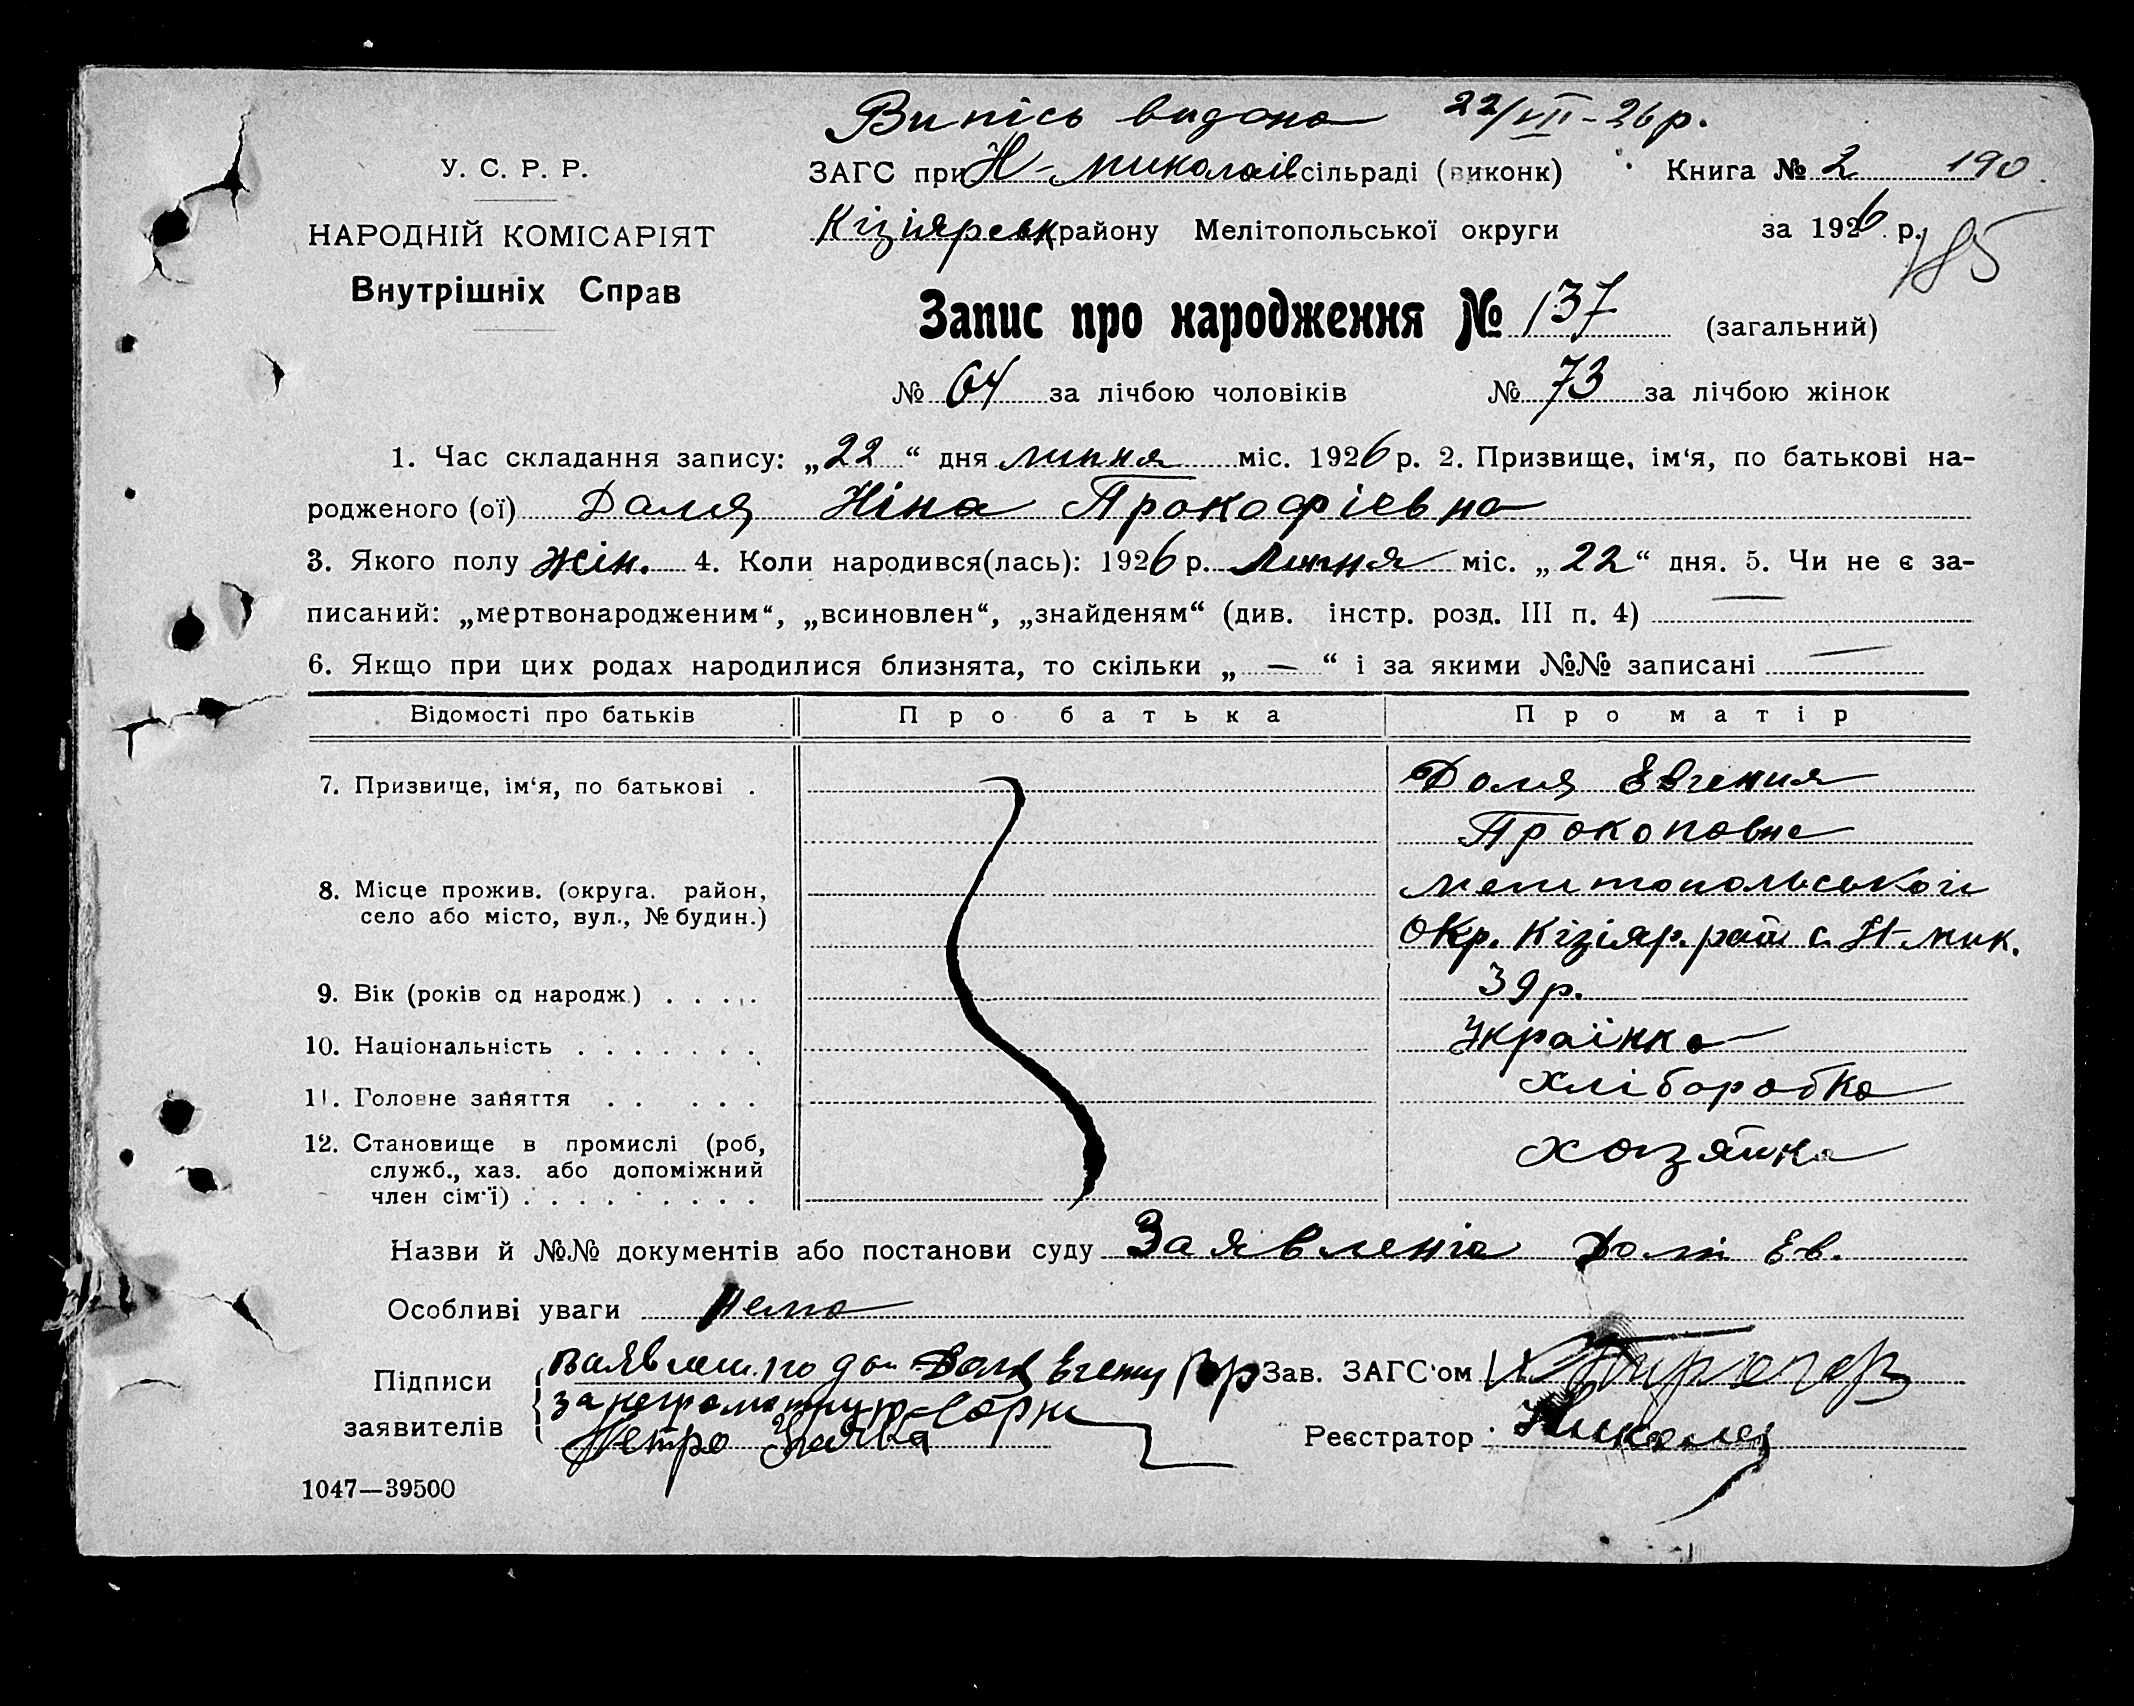 Випісь видана 22/VII-26 р.
У. С. Р. Р.
ЗАГС при Н-Миколаїв сільраді (виконк) Книга № 2 190
НАРОДНІЙ КОМІСАРІЯТ
Кізіярськ району Мелітопольської округи за 1926 р.
185
Внутрішніх Справ
Запис про народження № 137 (загальний)
№ 64 за лічбою чоловіків № 73 за лічбою жінок
1. Час складання запису: „22“ дня липня міс. 1926 р. 2. Призвище, ім'я, по батькові на-
родженого (ої) Доля Ніна Прокофієвна
3. Якого полу жін. 4. Коли народився(лась): 1926 р. Липня міс. „22“ дня. 5. Чи не є за-
писаний: „мертвонародженим“, „всиновлен“, „знайденям“ (див. інстр. розд. III п. 4) —
6. Якщо при цих родах народилися близнята, то скільки „—“ і за якими №№ записані —
Відомості про батьків Про батька Про матір
7. Призвище, ім'я, по батькові . Доля Евгения
Прокоповна
8. Місце прожив. (округа. район, Мелитопольськоі
село або місто, вул., № будин.) Окр. Кізіяр. рай с. Н-Мик.
9. Вік (років од народж.) . . . . 39 р.
10. Національність . . . . . . . Українка
11. Головне заняття . . . . . Хліборобка
12. Становище в промислі (роб, Хозяйка
служб., хаз. або допоміжний
член сім'ї) . . . . . . . . .
Назви й №№ документів або постанови суду Заявленіа Долі Ев.
Особливі уваги Нема
Підписи Доля Зав. ЗАГС'ом
заявителів за неграмотную
Петро Реєстратор
1047—39500